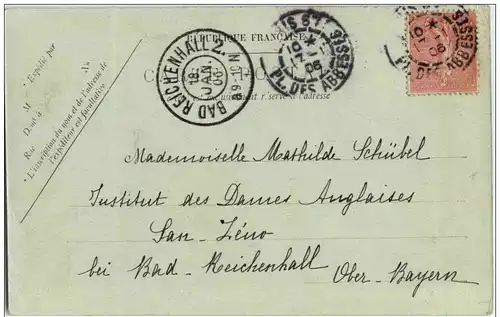 RÉPUBLIQUE FRANÇAISE
PARIS 61
10 *
17 1
06
PL. DES ABBESSES
10 *
1
06
PL. DES ABBESSES
BAD REICHENHALL 2.
18.
JAN.
06
N. 8-9
Ce côté est exclusivement réservé à l'adresse
* Expédié par
M
Demt à
Rue
No
* L'inscription du nom et de l'adresse de
l'expéditeur est facultative.
Mademoiselle Mathilde Schübel
Institut des Dames Anglaises
San-Zéno
bei Bad-Reichenhall
Ober-Bayern